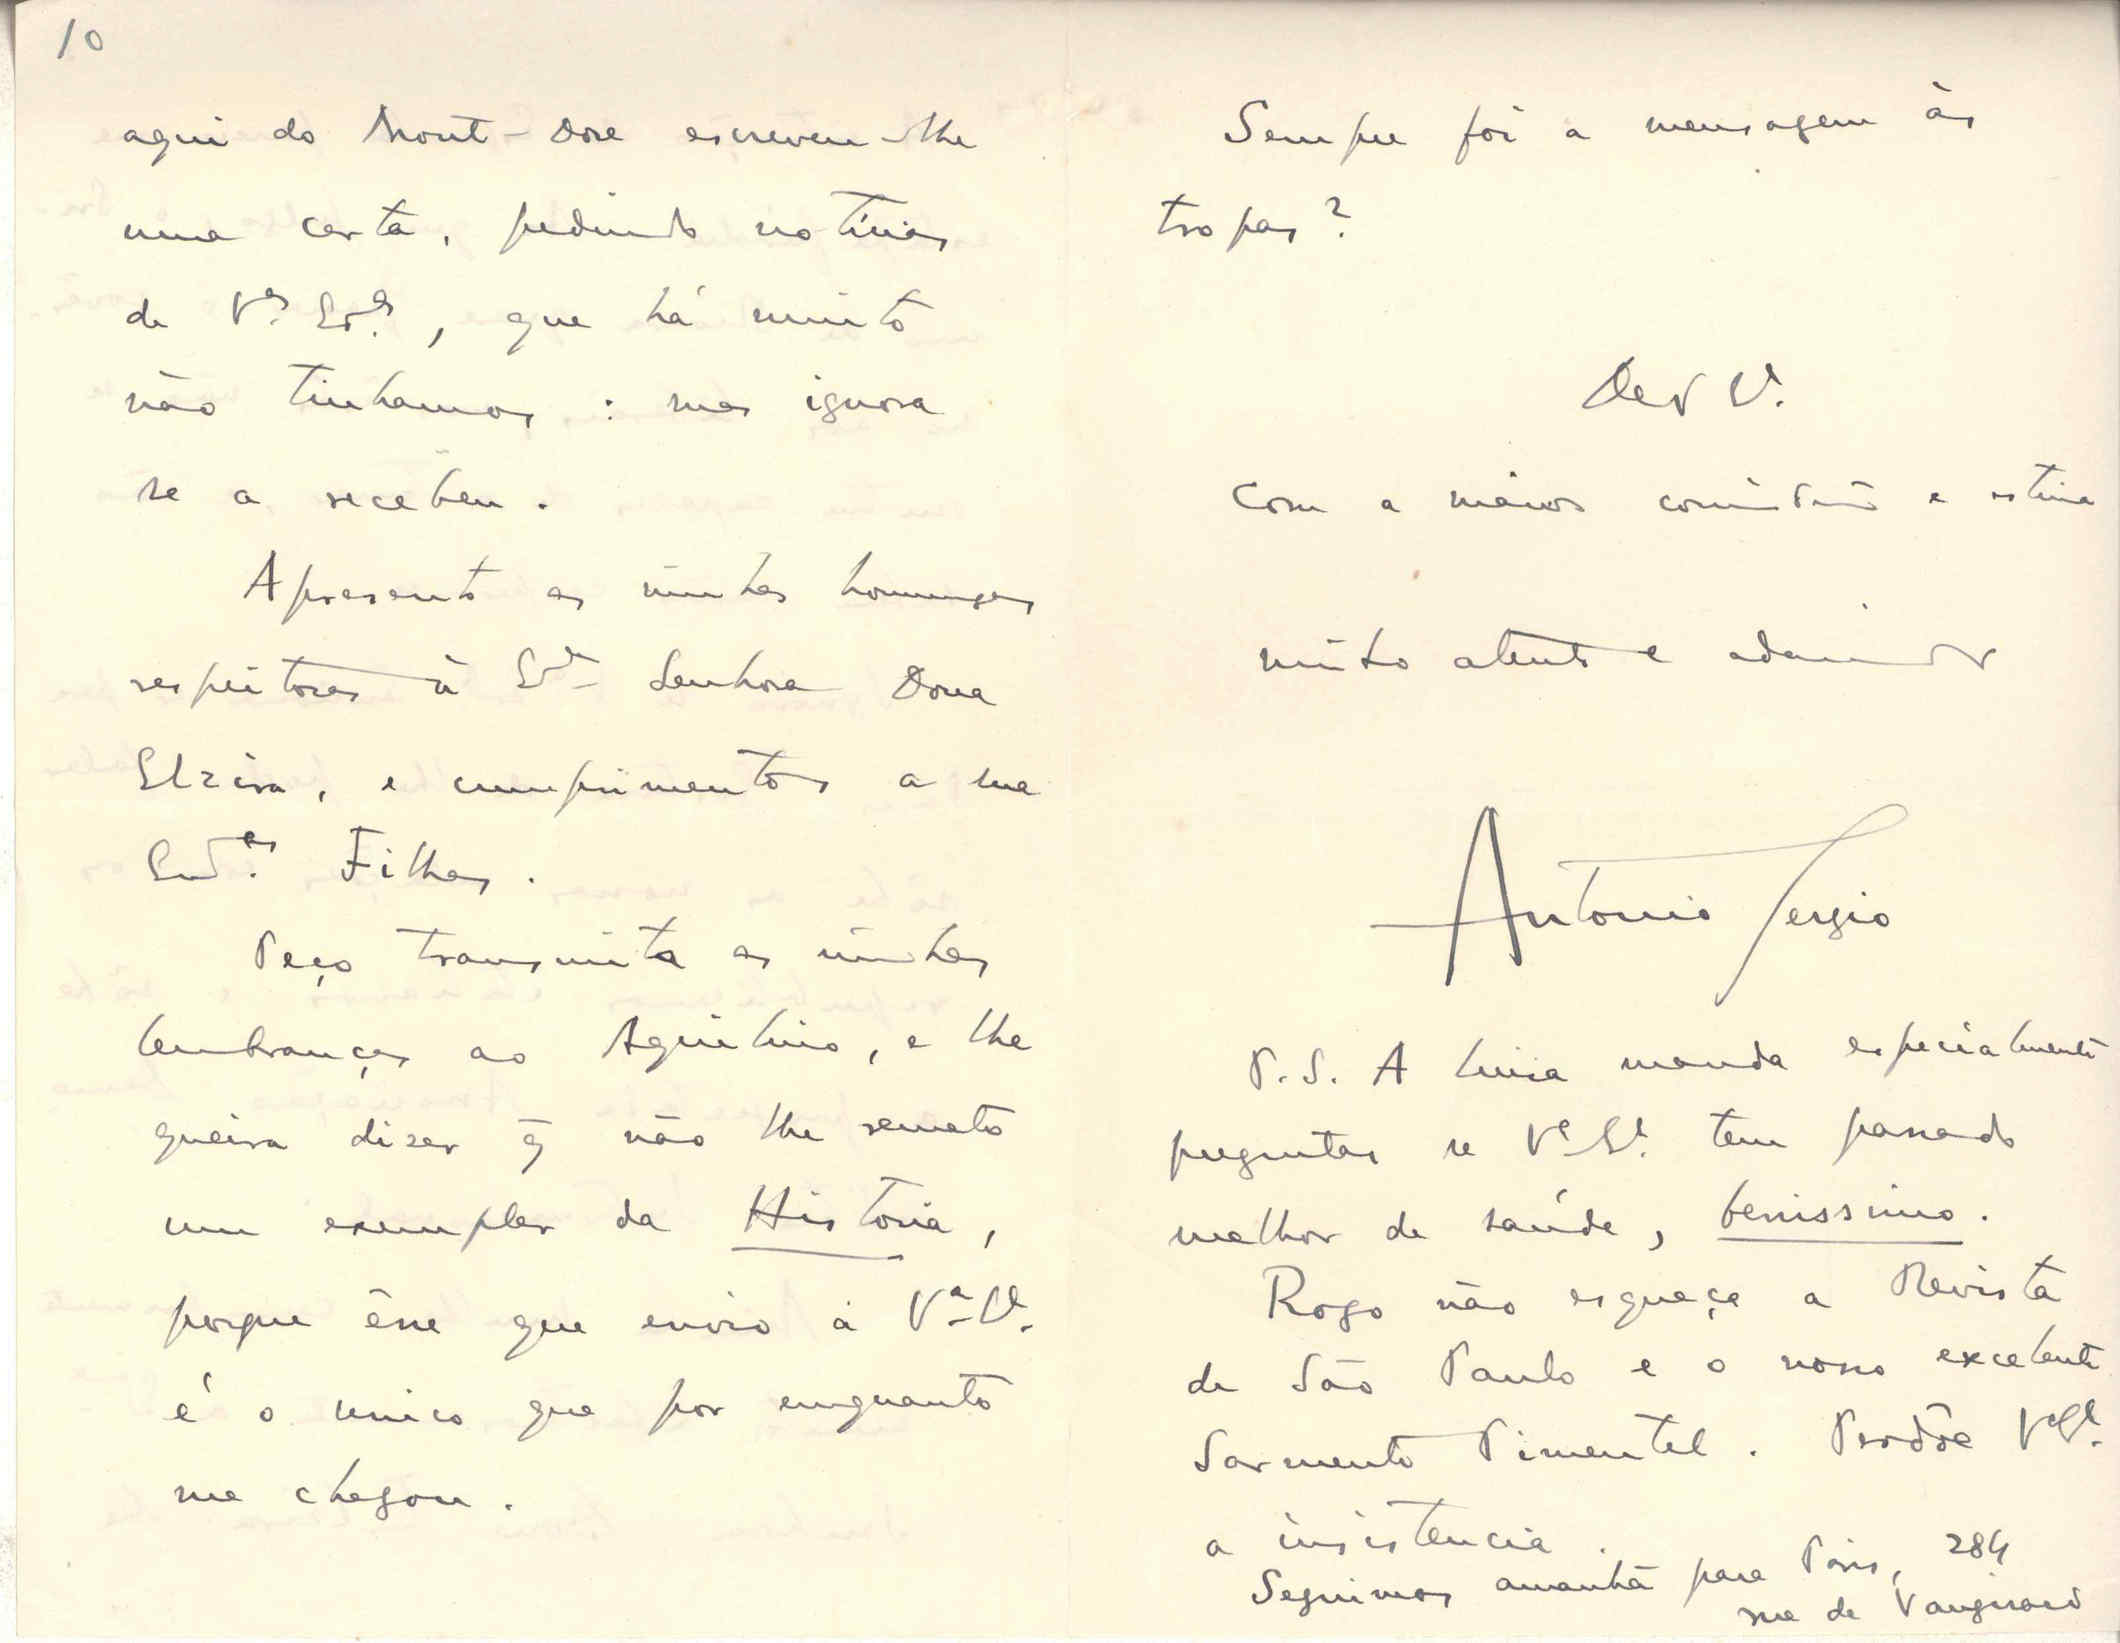 10
aqui do Mont-Dore escreveu-lhe
uma carta, pedindo notícias
de V.as Ex.as, que há muito
não tinhamos: mas ignora
se a recebeu.
Apresento as minhas homenagens
respeitosas à Ex.ma Senhora Dona
Elzira, e cumprimentos a sua
Ex.mas Filhas.
Peço transmita as minhas
lembranças ao Aquilino, e lhe
queira dizer q̃ não lhe remeto
um exemplar da História,
porque êsse que envio a V.a Ex.a
é o unico que por emquanto
me chegou.
Sempre foi a mensagem às
tropas?
De V. Ex.a
com a maior consideração e estima
muito atento e admirador
Antonio Sergio
P.S. A Luisa manda especialmente
preguntar se V.a Ex.a tem passado
melhor de saúde, benissimo.
Rogo não esqueça a Revista
de São Paulo e o nosso excelente
Sarmento Pimentel. Perdõe V.a Ex.a
a insistencia.
Seguimos amanhã para Paris, 284
rue de Vaugirard